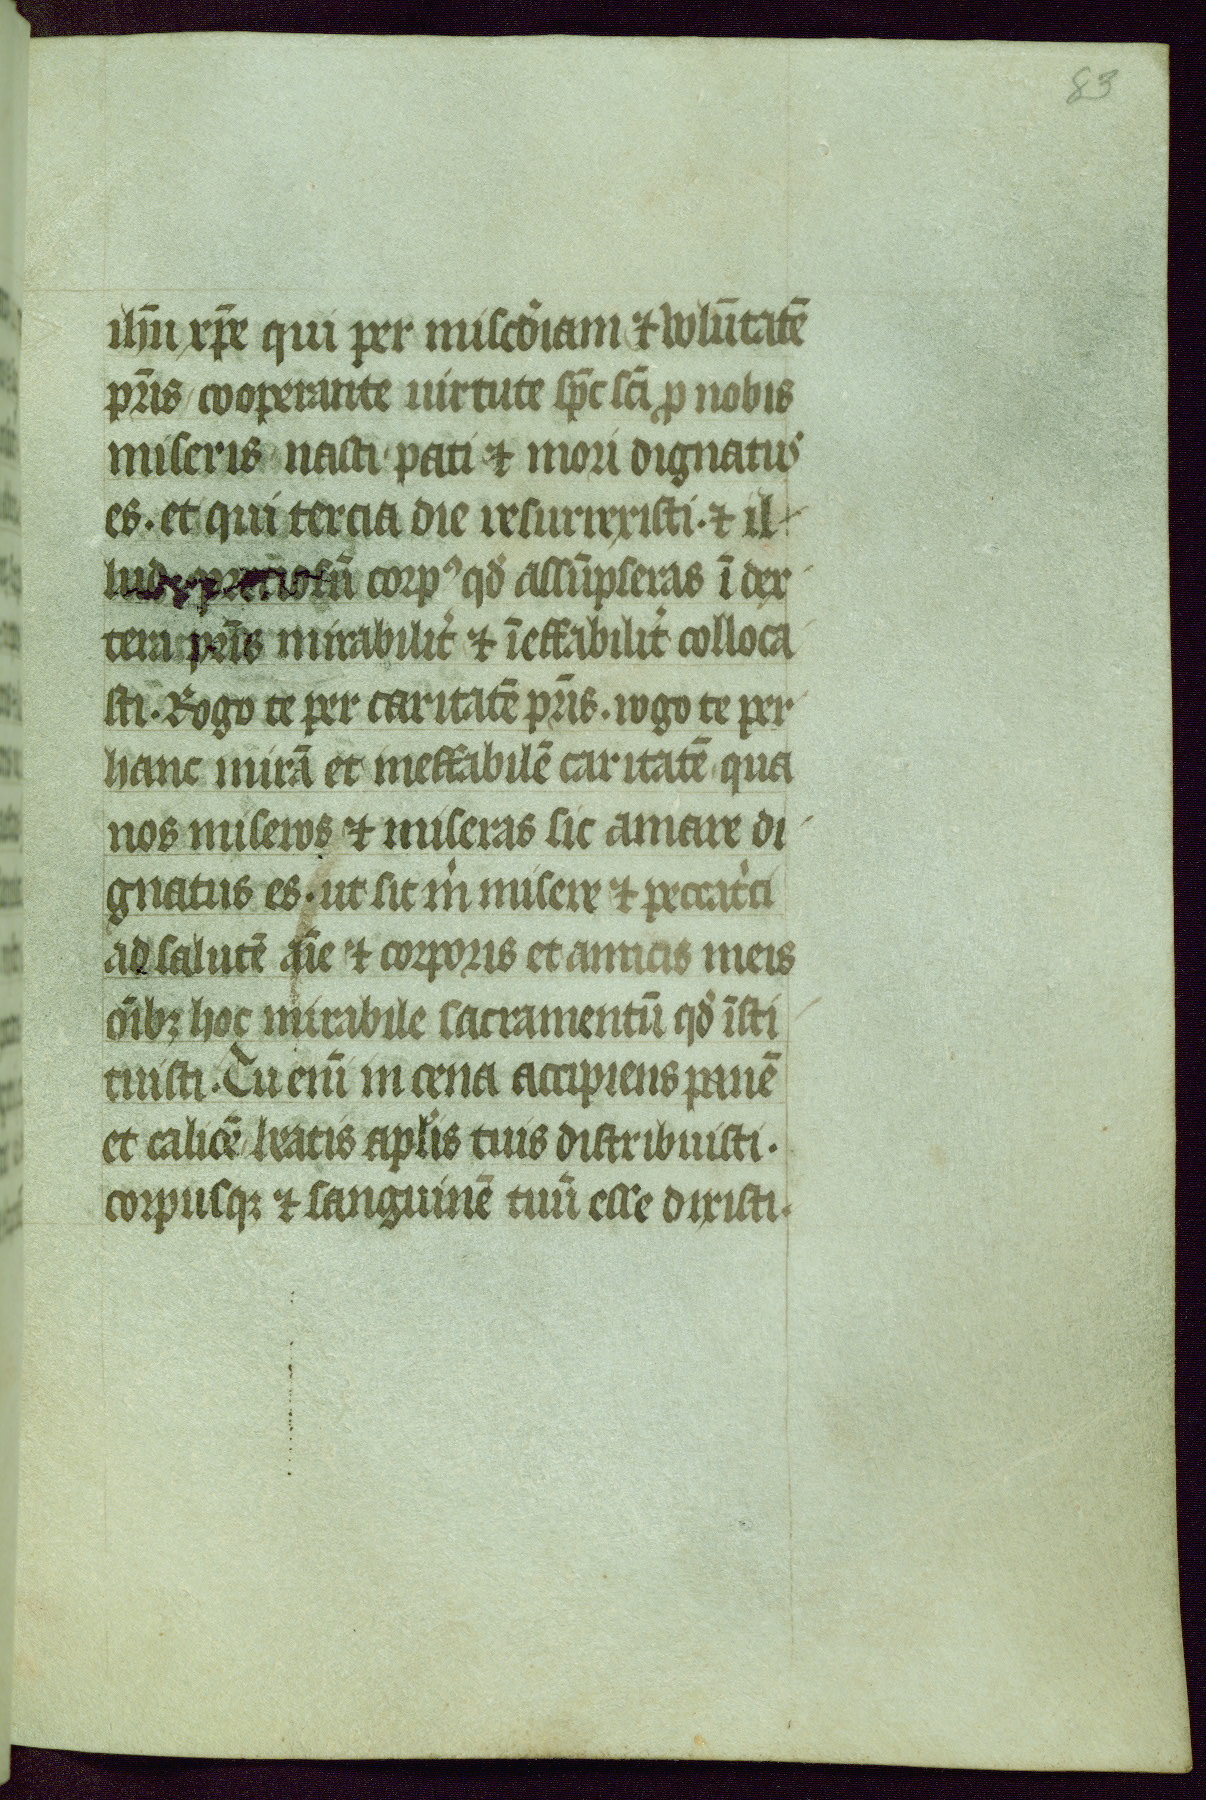 83
ihū xp̄e qui per misc̄diam ⁊ volūtatē
pr̄is cooperante uirtute sp̄c sc̄i ꝓ nobis
miseris nasci pati ⁊ mori dignatus
es. et qui tercia die resurrexisti. ⁊ il-
lud preciosū corpꝰ qd̛ assūpseras ī dex-
tera pr̄is mirabilit̛ ⁊ īeffabilit̛ colloca
sti. Rogo te per caritatē pr̄is. rogo te per
hanc mirā et ineffabilē caritatē qua
nos miseros ⁊ miseras sic amare di-
gnatus es. ut sit m̄ misere ⁊ peccat̛ci
ad salutē aīe ⁊ corporis et amicis meis
oībꝫ hoc mirabile sacramentū qd̛ īsti-
tuisti. Tu enī in cena accipiens panē
et calicē beatis apl̄is tuis distribuisti.
corpusqꝫ ⁊ sanguinē tuū esse dixisti.